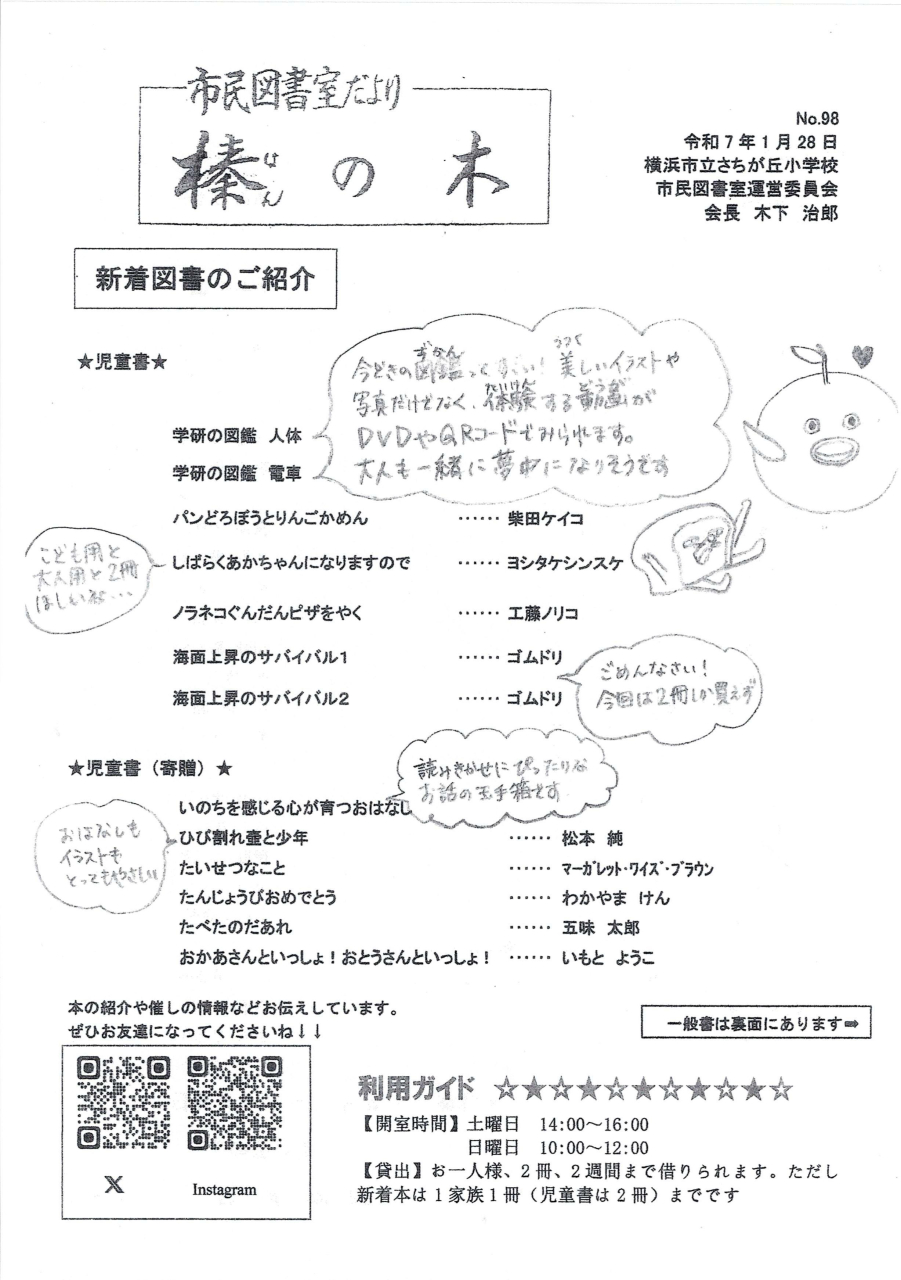 市民図書室だより
榛の木
はん
No.98
令和7年1月28日
横浜市立さちが丘小学校
市民図書室運営委員会
会長 木下 治郎
新着図書のご紹介
★児童書★
今どきの図鑑ってすごい！美しいイラストや
写真だけでなく、体験する動画が
DVDやQRコードでみられます。
大人も一緒に夢中になりそうです
学研の図鑑 人体
学研の図鑑 電車
パンどろぼうとりんごかめん ……柴田ケイコ
しばらくあかちゃんになりますので ……ヨシタケシンスケ
こども用と
大人用と2冊
ほしいね…
ノラネコぐんだんピザをやく ……工藤ノリコ
海面上昇のサバイバル1 ……ゴムドリ
海面上昇のサバイバル2 ……ゴムドリ
ごめんなさい！
今回は2冊しか買えず
★児童書（寄贈）★
読みきかせにぴったりな
お話の玉手箱です
いのちを感じる心が育つおはなし
ひび割れ壷と少年 ……松本 純
おはなしも
イラストも
とってもやさしい
たいせつなこと ……マーガレット・ワイズ・ブラウン
たんじょうびおめでとう ……わかやま けん
たべたのだあれ ……五味 太郎
おかあさんといっしょ！おとうさんといっしょ！ ……いもと ようこ
本の紹介や催しの情報などお伝えしています。
ぜひお友達になってくださいね↓↓
X
Instagram
一般書は裏面にあります➡
利用ガイド ☆★☆★☆★☆★☆★☆
【開室時間】土曜日 14:00～16:00
日曜日 10:00～12:00
【貸出】お一人様、2冊、2週間まで借りられます。ただし
新着本は1家族1冊（児童書は2冊）までです